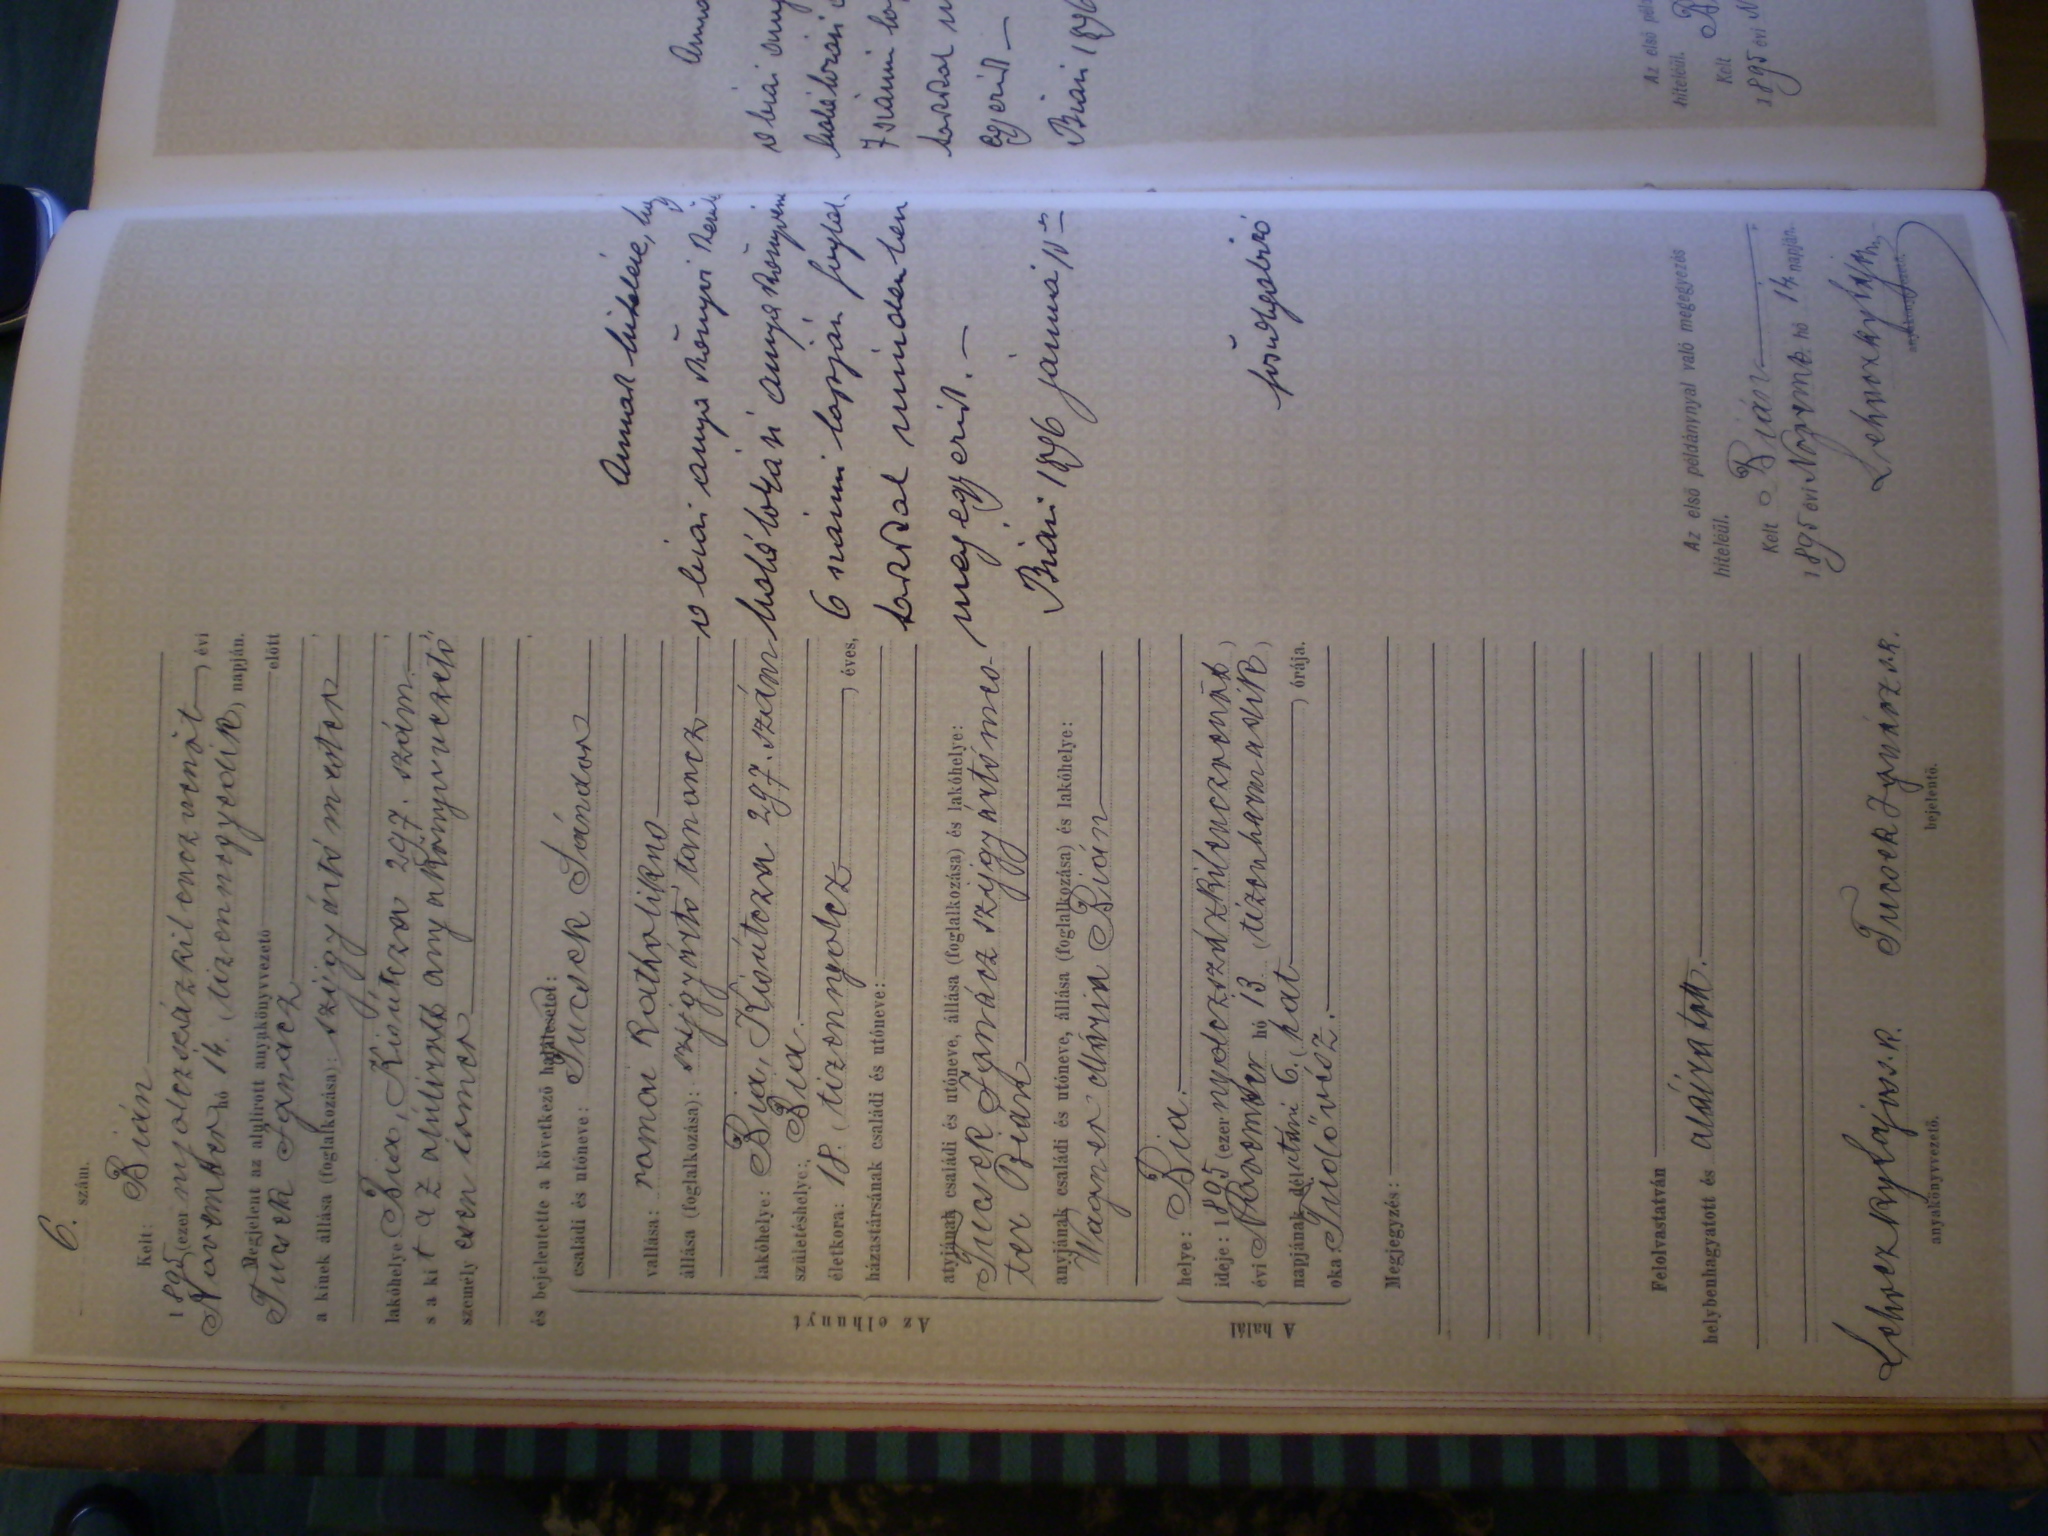 6. szám.
Kelt: Bián
1895 (ezer nyolczszázkilenczvenöt), évi
November hó 14. (tizennegyedik), napján.
Megjelent az alulirott anyakönyvvezető előtt
Tucsek Ignácz
a kinek állása (foglalkozása): szijgyártó mester
lakóhelye Bia, Kisútcza 297. szám
s a kit az alúlirott anyakönyvvezető
személyesen ismer
és bejelentette a következő halálesetet:
Az elhunyt
családi és utóneve: Tucsek Sándor
vallása: római katholikus
állása (foglalkozása): szijgyártó tanoncz
lakóhelye: Bia, Kisútcza 297. szám
születéshelye: Bia.
életkora: 18. (tizennyolcz), éves,
házastársának családi és utóneve:
atyjának családi és utóneve, állása (foglalkozása) és lakóhelye:
Tucsek Ignácz szijgyártó mes-
ter Bián
anyjának családi és utóneve, állása (foglalkozása) és lakóhelye:
Wagner Mária Bián
A halál
helye: Bia.
ideje: 1895 (ezer nyolczszázkilenczvenöt)
évi November hó 13 (tizenharmadik)
napjának délutáni 6. (hat), órája.
oka: Tüdővész.
Megjegyzés:
Felolvastatván
helybenhagyatott és aláiratott.
Lehoczky Lajos s. k.
anyakönyvvezető.
Tucsek Ignácz s. k.
bejelentő.
Annak hiteléül, hogy
a biai anyakönyvi kerület
halálozási anyakönyvének
6 számú lapján foglal-
takkal mindenben
megegyezik.
Bián 1896 január
főszolgabíró
Az első példánynyal való megegyezés
hiteléül.
Kelt Bián
1895 évi Novemb. hó 14 napján.
Lehoczky Lajos
anyakönyvvezető.
Annak
a biai any
halálozási
7 számú lap
egyezik
Bián 1896
Az első péld
hiteléül.
Kelt
1895 évi N